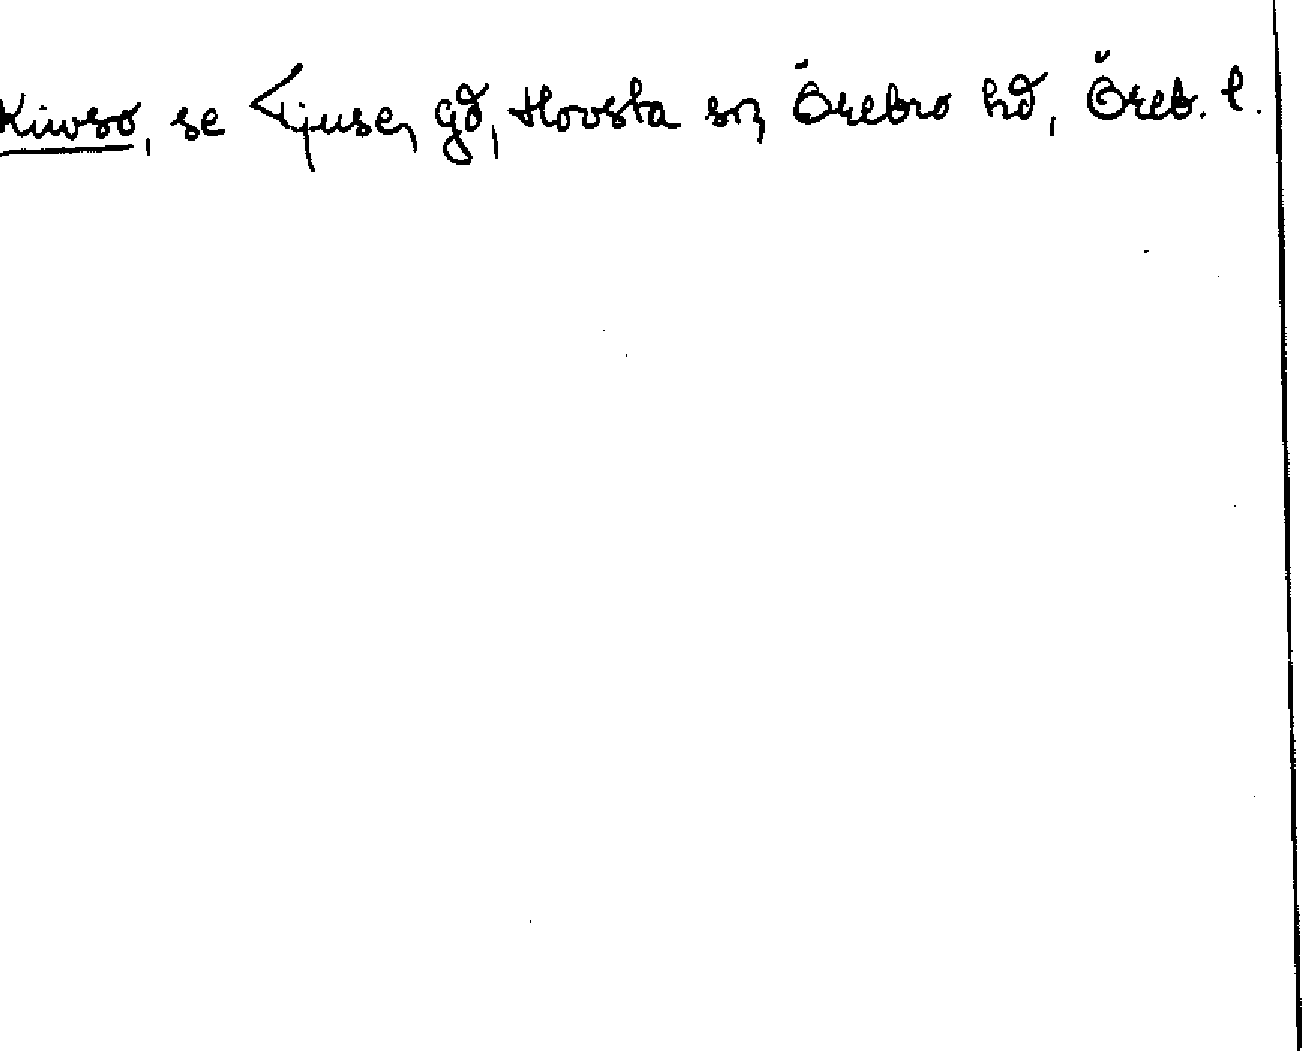 Kiwso, se Tjuse, gd, Hovsta sn, Örebro hd, Öreb. l.